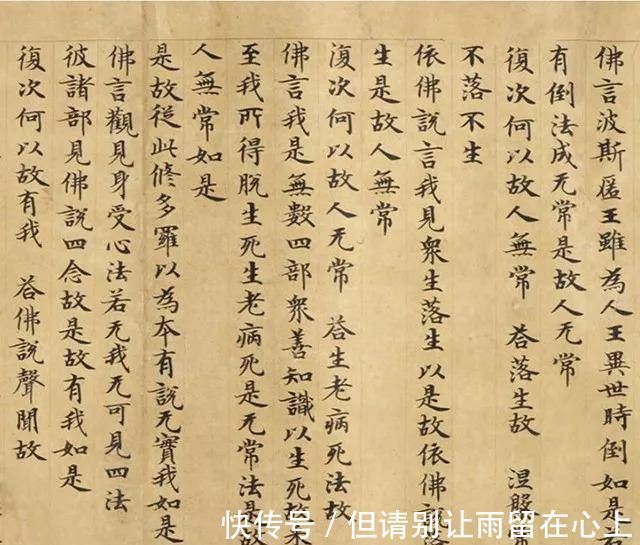 佛言波斯匿王雖為人王異世時倒如是
有倒法成无常是故人无常
復次何以故人無常 荅落生故 涅槃
不落不生
依佛說言我見衆生落生以是故依佛
生是故人無常
復次何以故人无常 荅生老病死法故
佛言我是無數四部衆善知識以生死
至我所得脫生死生老病死是无常法是故
人無常如是
是故從此修多羅以為本有說无實我如是
佛言觀見身受心法若无我无可見四法
彼諸部見佛說四念故是故有我如是
復次何以故有我 荅佛說聲聞故
快传号/但请别让雨留在心上